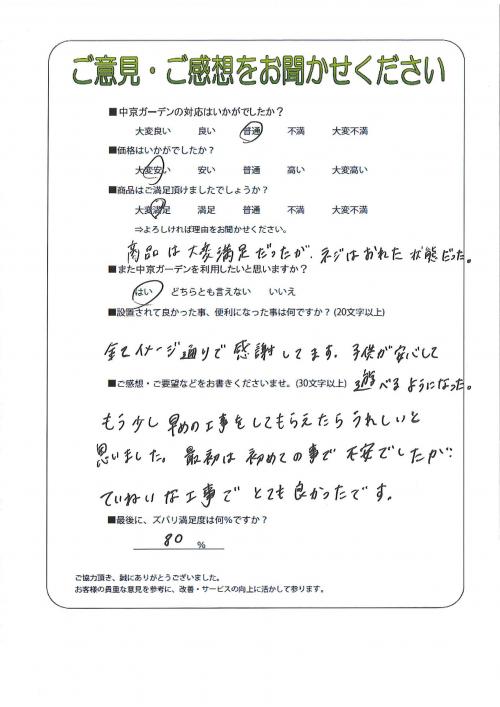 ご意見・ご感想をお聞かせください
■中京ガーデンの対応はいかがでしたか？
大変良い 良い 普通 不満 大変不満
■価格はいかがでしたか？
大変安い 安い 普通 高い 大変高い
■商品はご満足頂けましたでしょうか？
大変満足 満足 普通 不満 大変不満
⇒よろしければ理由をお聞かせください。
商品は大変満足だったが、ネジはおれた状態だった。
■また中京ガーデンを利用したいと思いますか？
はい どちらとも言えない いいえ
■設置されて良かった事、便利になった事は何ですか？(20文字以上)
全てイメージ通りで感謝してます。子供が安心して
■ご感想・ご要望などをお書きくださいませ。(30文字以上) 遊べるようになった。
もう少し早めの工事をしてもらえたらうれしいと
思いました。最初は初めての事で不安でしたが、
ていねいな工事でとても良かったです。
■最後に、ズバリ満足度は何%ですか？
80 %
ご協力頂き、誠にありがとうございました。
お客様の貴重な意見を参考に、改善・サービスの向上に活かして参ります。